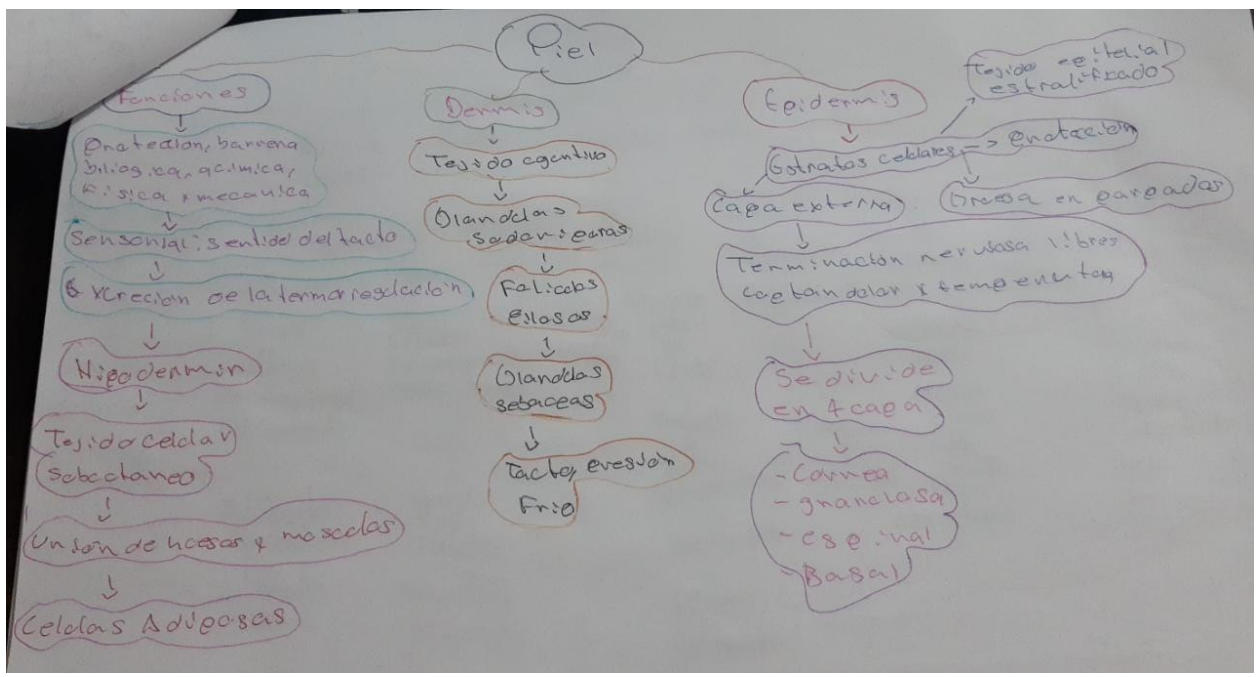 Piel
Funciones
Proteccion, barrera
biliogica, qcimica,
fisica y mecanica
Sensorial: sentido del tacto
Excrecion de la termoregclacion
Hipodermin
Tejido celclar
sobcctaneo
Unión de hcesos y moscclos
Celclas Adiposas
Dermis
Tejido cgentivo
Glandclas
sodoriparas
Foliccls
pilosas
Glandclas
sebaceas
Tacto, presión
Frio
Epidermis
Tejido epitelial
estratifzado
Estratos celclares -> protección
Capa externa
Grcesa en parpados
Terminación nerviosa libres
captan dolor y temperentra
Se divide
en 4 capa
- Cornea
- granclosa
- espinal
- Basal